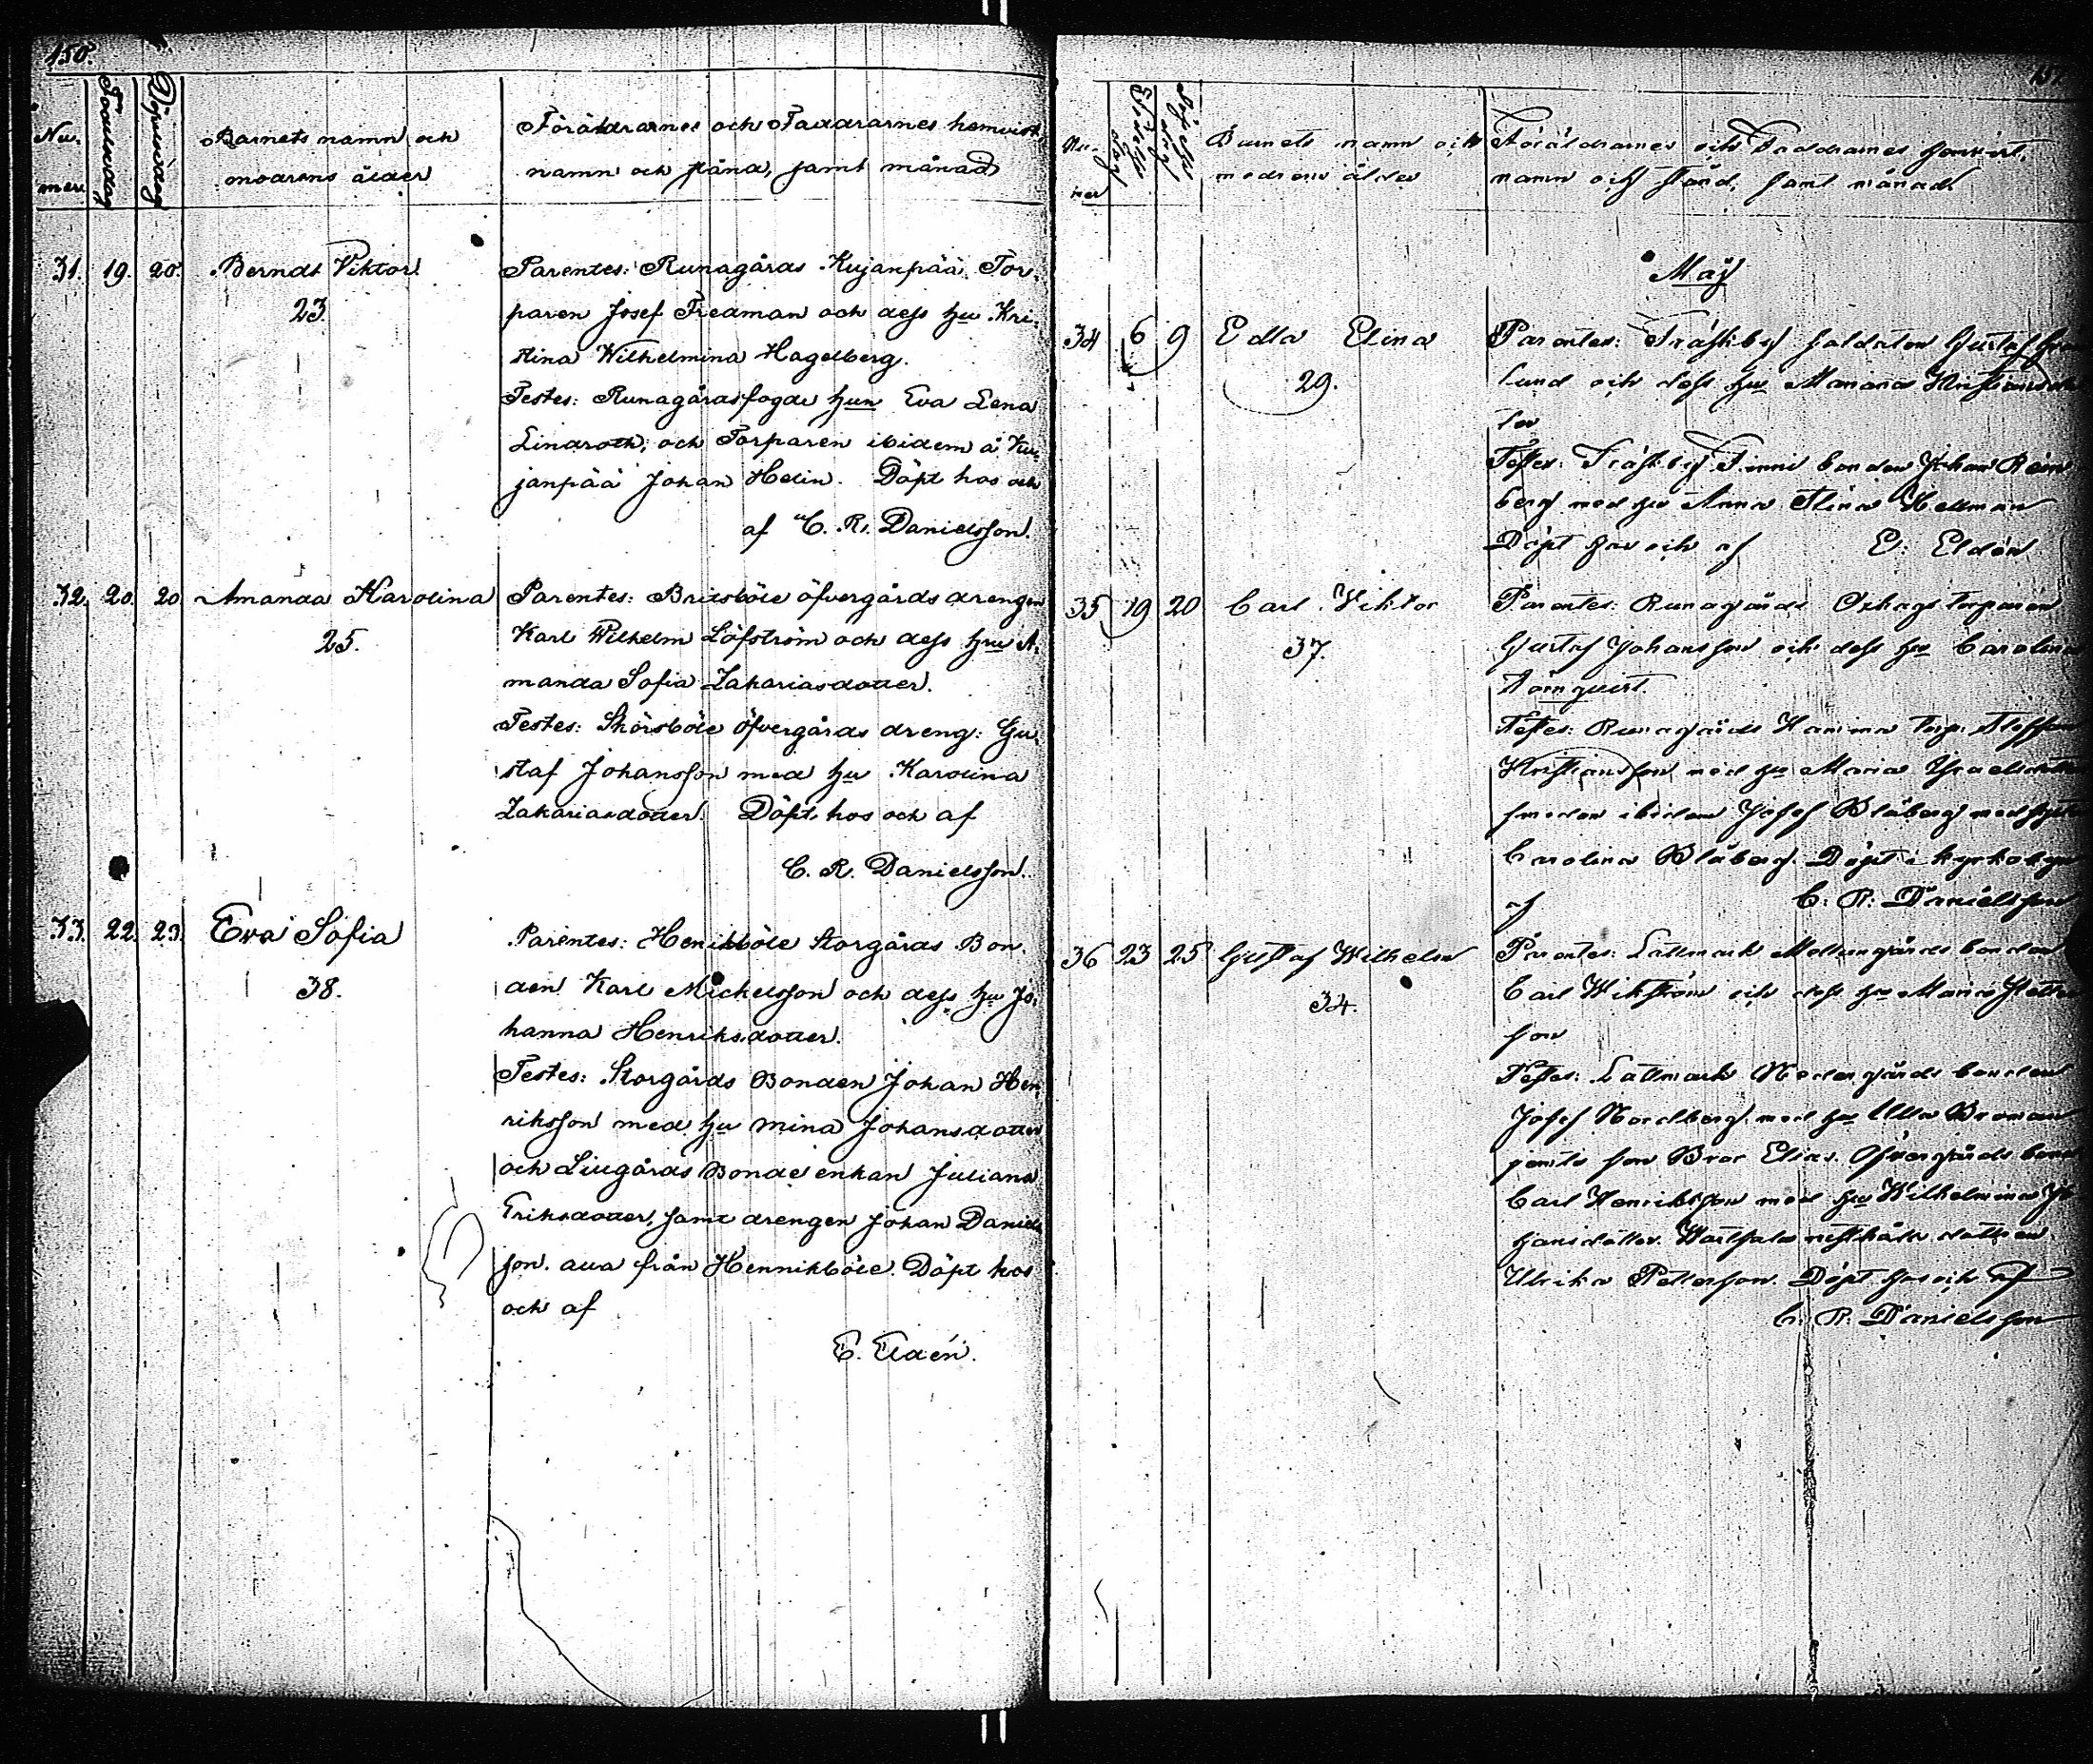 150.
Nu-
mer
Födelsedag
Döpelsedag
Barnets namn och
modrens ålder
Föräldrarnes och Faddrarnes hemvist,
namn och stånd, samt månad
31. 19. 20. Berndt Viktor
23.
Parentes: Runagårds Kujanpää Tor-
paren Josef Fredman och dess hu Kri-
stina Wilhelmina Hagelberg.
Testes: Runagårds fogde hun Eva Lena
Lindroth, och Torparen ibidem å Ku-
janpää Johan Hedin. Döpt hos och
af C. R. Danielsson.
32. 20. 20 Amanda Karolina
25.
Parentes: Brudsböle öfvergårds drengen
Karl Wilhelm Löfström och dess hu A-
manda Sofia Zakariasdotter.
Testes: Skörsböle öfvergårds dreng: Gu-
staf Johansson med hu Karolina
Zakariasdotter. Döpt hos och af
C. R. Danielsson.
33. 22. 23. Eva Sofia
38.
Parentes: Henikböle Storgårds Bon-
den Karl Mickelsson och dess hu Jo-
hanna Henriksdotter.
Testes: Storgårds Bonden Johan Hen-
riksson med hu Mina Johansdotter
och Lillgårds Bonde enkan Juliana
Eriksdotter, samt drengen Johan Daniels
son. alla från Hennikböle. Döpt hos
och af
E. Eldén.
Nu-
mer
Barnets namn och
modrens ålder
Föräldrarnes och Faddrarnes hemvist,
namn och stånd, samt månad
Maj
34 6 9 Edla Elina
29.
Parentes: Träskby soldaten Gustaf
lund och dess hu Mariana Kristiansdot
ter
Testes: Träskby Finni bonden Johan Rön
berg med hu Anna Stina Hellman
Döpt hos och af E. Eldén
35 19 20 Carl Viktor
37.
Parentes: Runagårds torparen
Gustaf Johansson och dess hu Carolina
Törnqvist.
Testes: Runagårds torp. Steffan
Kristiansson med hu Maria Israelsdotter
smeden ibidem Josef Blåberg med
Carolina Blåberg. Döpt i kyrkobyn
af C. R. Danielsson
36 23 25 Gustaf Wilhelm
34.
Parentes: Lallmark Mellangårds bonden
Carl Wikström och dess hu Maria
son
Testes: Lallmark Nedergårds bonden
Josef Nordberg med hu Ulla Broman
jemte son Bror Elias. Öfvergårds bonden
Carl Henriksson med hu Wilhelmina Jo
hansdotter dottren
Ulrika Pettersson. Döpt hos och af
C. R. Danielsson